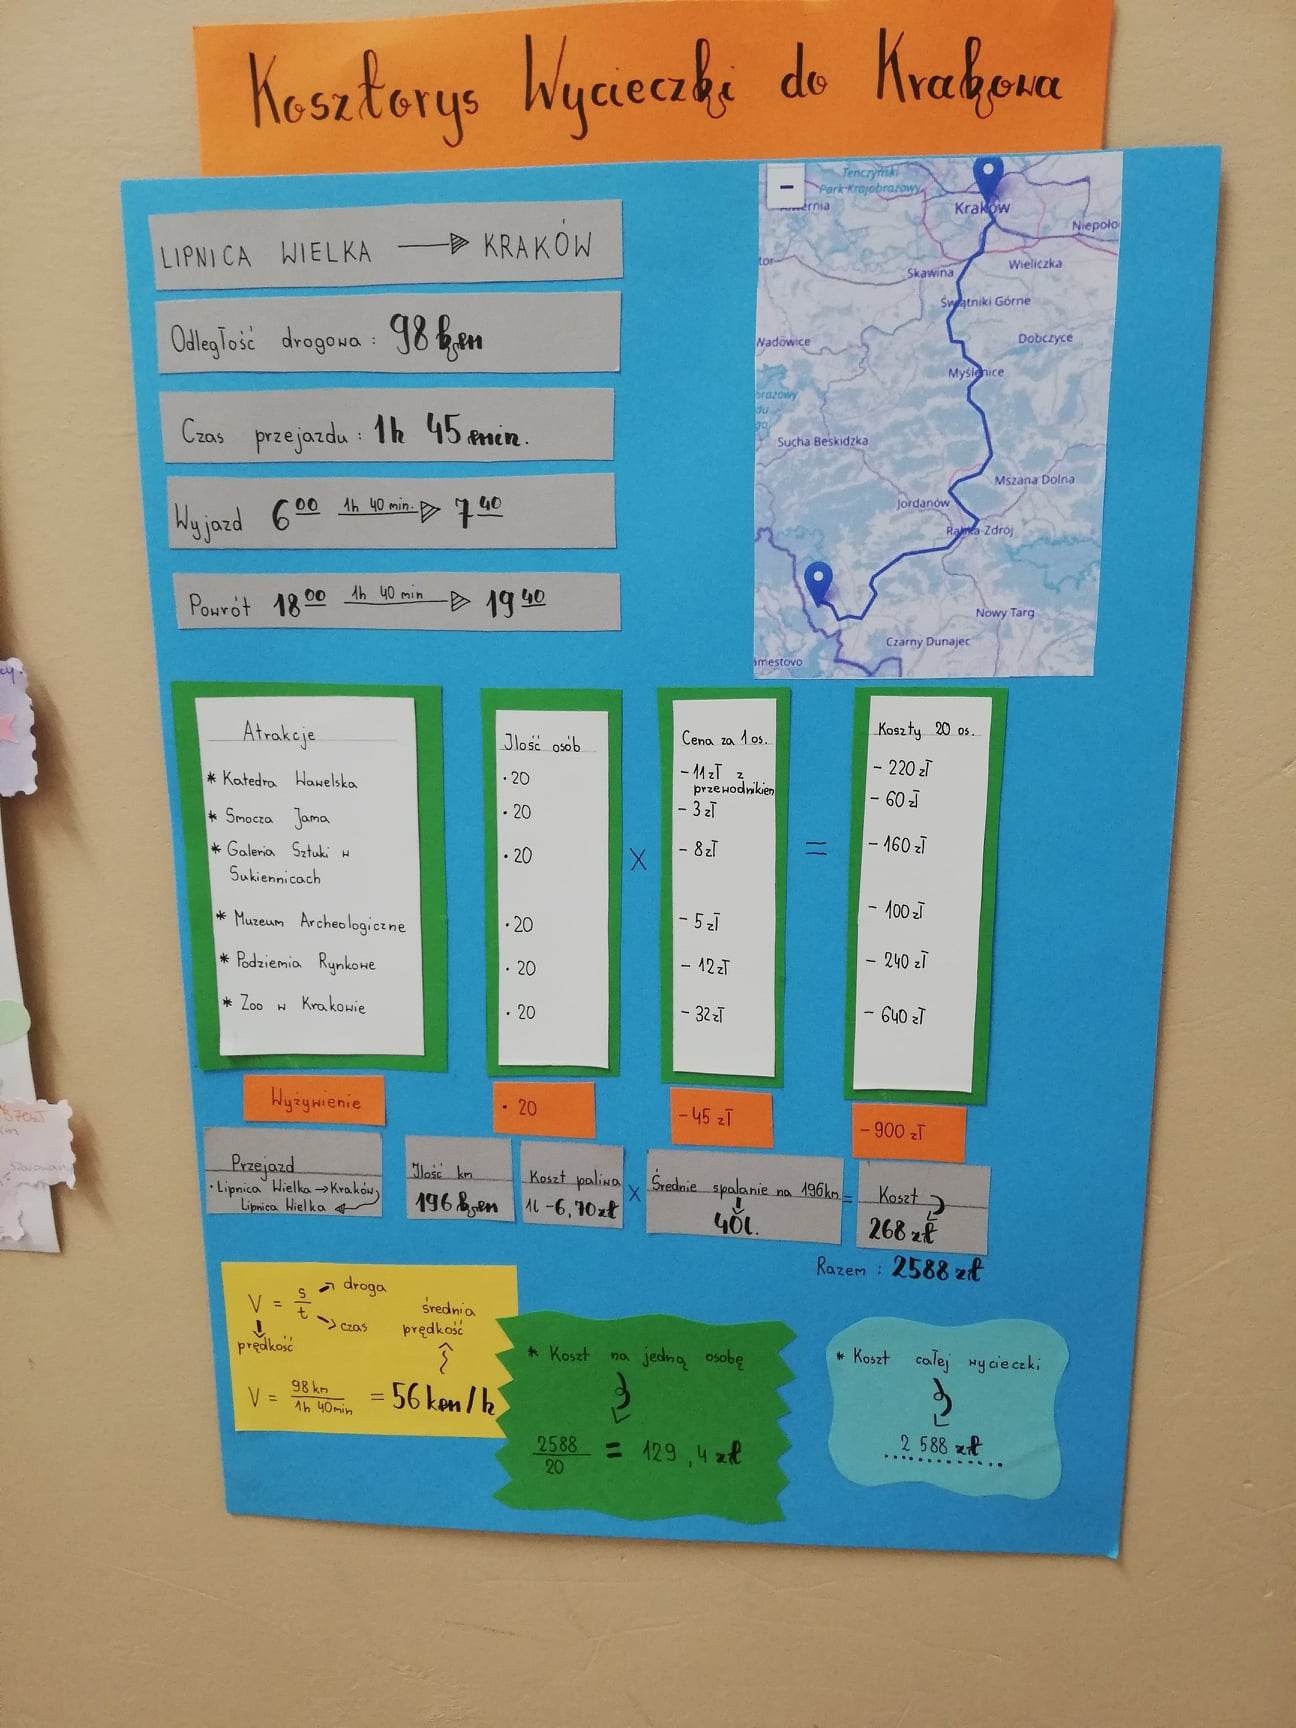 Kosztorys Wycieczki do Krakowa
LIPNICA WIELKA → KRAKÓW
Odległość drogowa: 98 km
Czas przejazdu: 1h 45 min.
Wyjazd 6⁰⁰ 1h 40 min. → 7⁴⁰
Powrót 18⁰⁰ 1h 40 min → 19⁴⁰
Tenczyński
Park Krajobrazowy
Kraków
Niepoło
Wieliczka
Skawina
Świątniki Górne
Dobczyce
Wadowice
Myślenice
Sucha Beskidzka
Mszana Dolna
Jordanów
Rabka-Zdrój
Nowy Targ
Czarny Dunajec
amestovo
Atrakcje
* Katedra Wawelska
* Smocza Jama
* Galeria Sztuki w
Sukiennicach
* Muzeum Archeologiczne
* Podziemia Rynkowe
* Zoo w Krakowie
Ilość osób
• 20
• 20
• 20
• 20
• 20
• 20
x
Cena za 1 os.
- 11 zł z
przewodnikiem
- 3 zł
- 8 zł
- 5 zł
- 12 zł
- 32 zł
=
Koszty 20 os.
- 220 zł
- 60 zł
- 160 zł
- 100 zł
- 240 zł
- 640 zł
Wyżywienie • 20 - 45 zł - 900 zł
Przejazd
• Lipnica Wielka → Kraków
Lipnica Wielka ←
Ilość km
196 km
Koszt paliwa
1l - 6,70 zł
x
Średnie spalanie na 196 km
40l.
=
Koszt
268 zł
Razem: 2588 zł
V = s/t → droga
→ czas
prędkość
średnia
prędkość
V = 98 km / 1h 40min = 56 km/h
* Koszt na jedną osobę
2588 / 20 = 129,4 zł
* Koszt całej wycieczki
2 588 zł